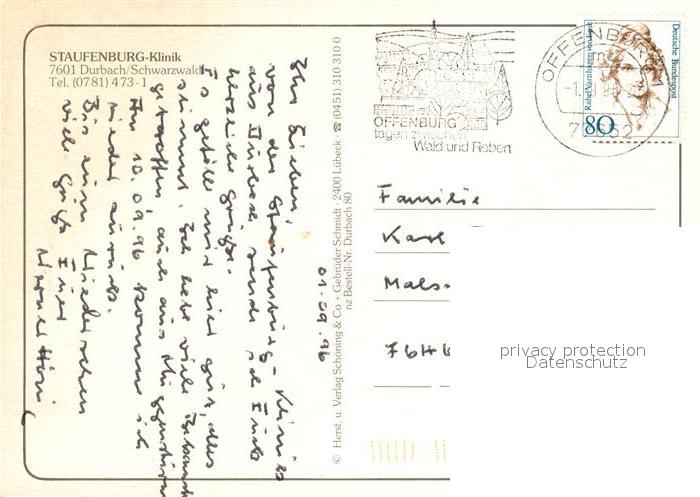 STAUFENBURG-Klinik
7601 Durbach/Schwarzwald
Tel. (0781) 473-1
Ihr Lieben,
von der Staufenburg-Klinik
aus Durbach sende ich Euch
herzliche Grüße.
Es gefällt mir hier gut, alles
stimmt. Ich habe viele Bekannte
getroffen auch aus
Am 10.09.96 komme ich
wieder zurück.
Bis zum Wiedersehen
viele Grüße Euer
01.09.96
© Herst. u. Verlag Schöning & Co + Gebrüder Schmidt · 2400 Lübeck · ☎ (0451) 310 310 0
nz Bestell-Nr. Durbach 80
OFFENBURG
tagen zwischen
Wald und Reben
OFFENBURG
Rahel Varnhagen von Ense
Deutsche Bundespost
80
Familie
Karl
Mals-
privacy protection
Datenschutz